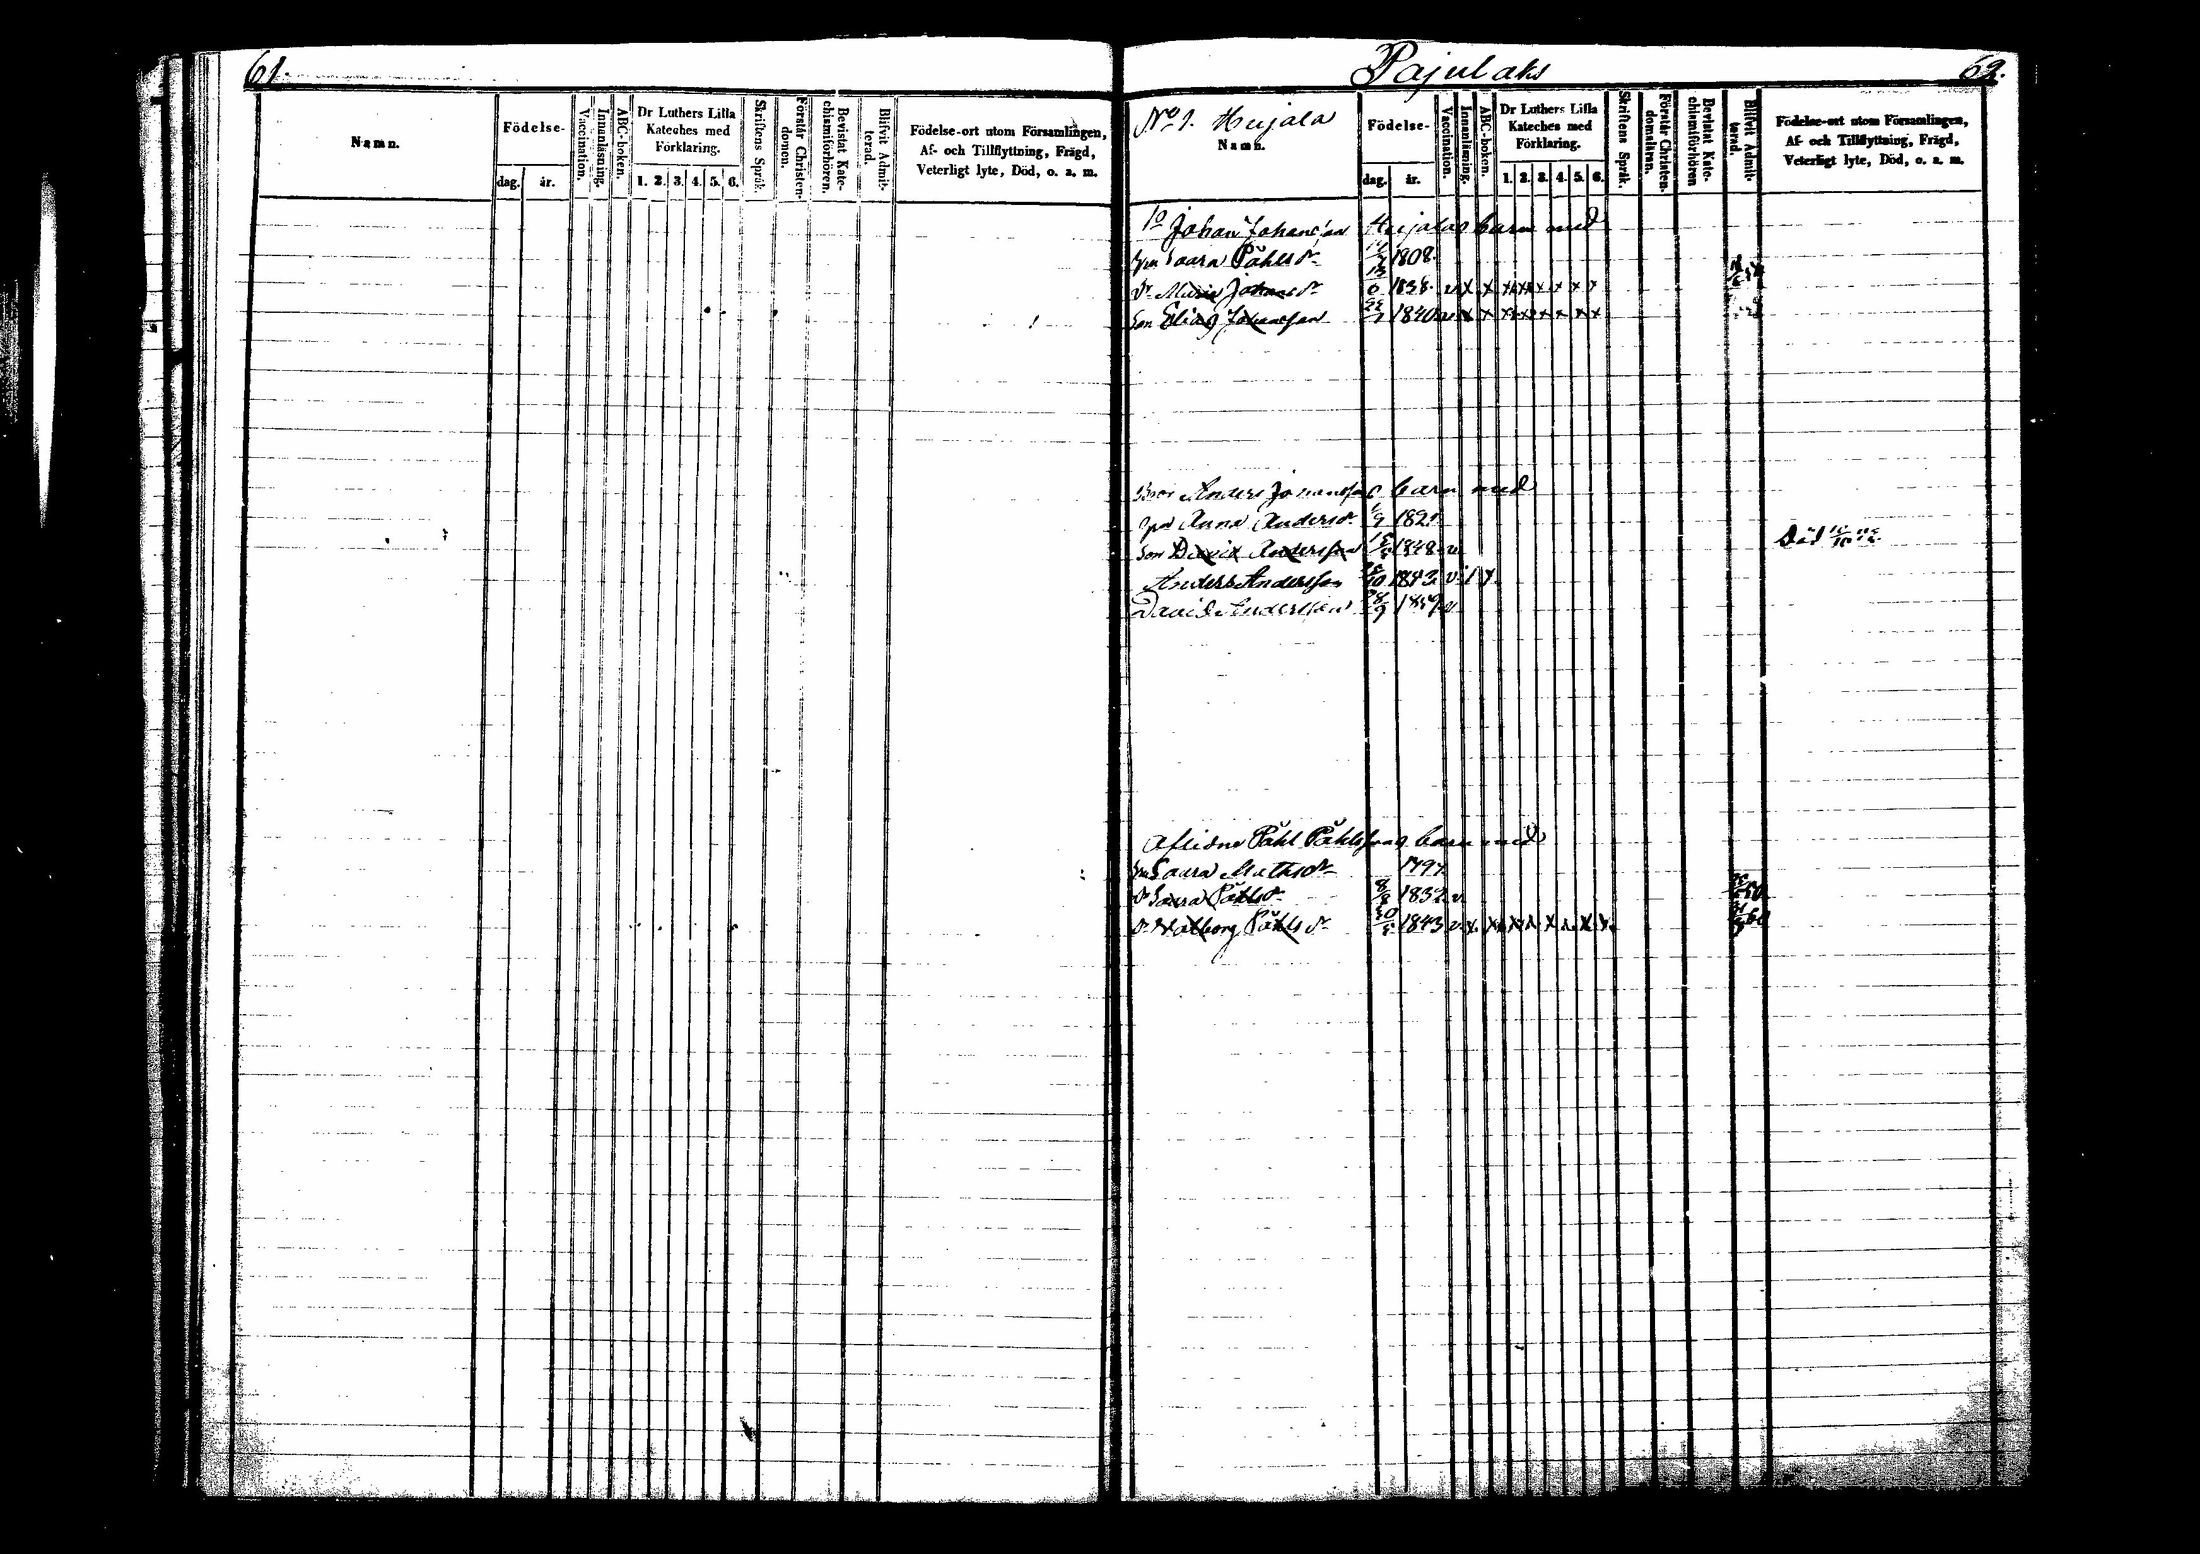 61.
Namn.
Födelse-
dag. år.
Vaccination.
Innanläsning.
ABC-boken.
Dr Luthers Lilla
Kateches med
Förklaring.
1. 2. 3. 4. 5. 6.
Skriftens Språk.
Förstår Christen-
domen.
Bevistat Kate-
chismiförhören.
Blifvit Admit-
terad.
Födelse-ort utom Församlingen,
Af- och Tillflyttning, Frägd,
Veterligt lyte, Död, o. a. m.
Pajulaks
62.
No 1. Heijala
Namn.
Födelse-
dag. år.
Vaccination.
Innanläsning.
ABC-boken.
Dr Luthers Lilla
Kateches med
Förklaring.
1. 2. 3. 4. 5. 6.
Skriftens Språk.
Förstår Christen-
domsläran.
Bevistat Kate-
chismiförhören
Blifvit Admit-
terad.
Födelse-ort utom Församlingen,
Af- och Tillflyttning, Frägd,
Veterligt lyte, Död, o. a. m.
1o Johan Johansson Heijalas barn med
Saara Påhlsdr 1808.
Dr Maria Johansdr 1838. v x x x x x x x x
Son Elias Johansson 1840 v x x x x x x x x
Bror Anders Johanssons barn med
Anna Andersdr 1821
Son David Andersson 1848 v Död
Anders Andersson 1843 v
David Andersson 28/9 1849 v
Aflidne Påhl Påhlssons barn med
Saara Mathsdr 1797
Dr Saara Påhlsdr 8/8 1832 v
Dr Walborg Påhlsdr 1843 v x x x x x x x x